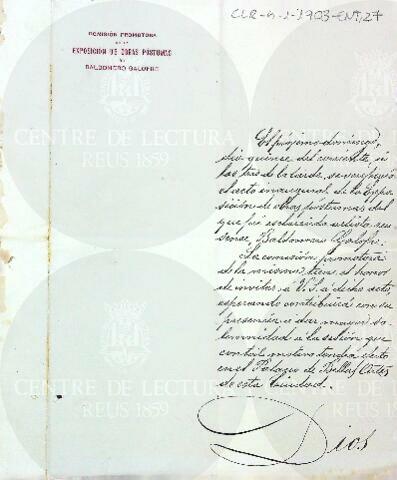 CLR-
1903-ENT,27
COMISIÓN PROMOTORA
DE LA
EXPOSICIÓN DE OBRAS PÓSTUMAS
DE
BALDOMERO GALOFRE
El próximo domingo,
dia quince del corriente, á
las tres de la tarde, se
el acto inaugural de la Expo-
sición de obras póstumas del
que fué esclarecido artista reu-
sense, Baldomero Galofre.
La comisión promotora
de la misma, tiene el honor
de invitar á V.S. á dicho acto,
esperando contribuirá con su
presencia a dar mayor so-
lemnidad a la sesión que
con tal motivo tendrá efecto
en el Palacio de Bellas Artes
de esta Ciudad.
Dios
CENTRE DE LECTURA
REUS 1859
CENTRE DE LECTURA
REUS 1859